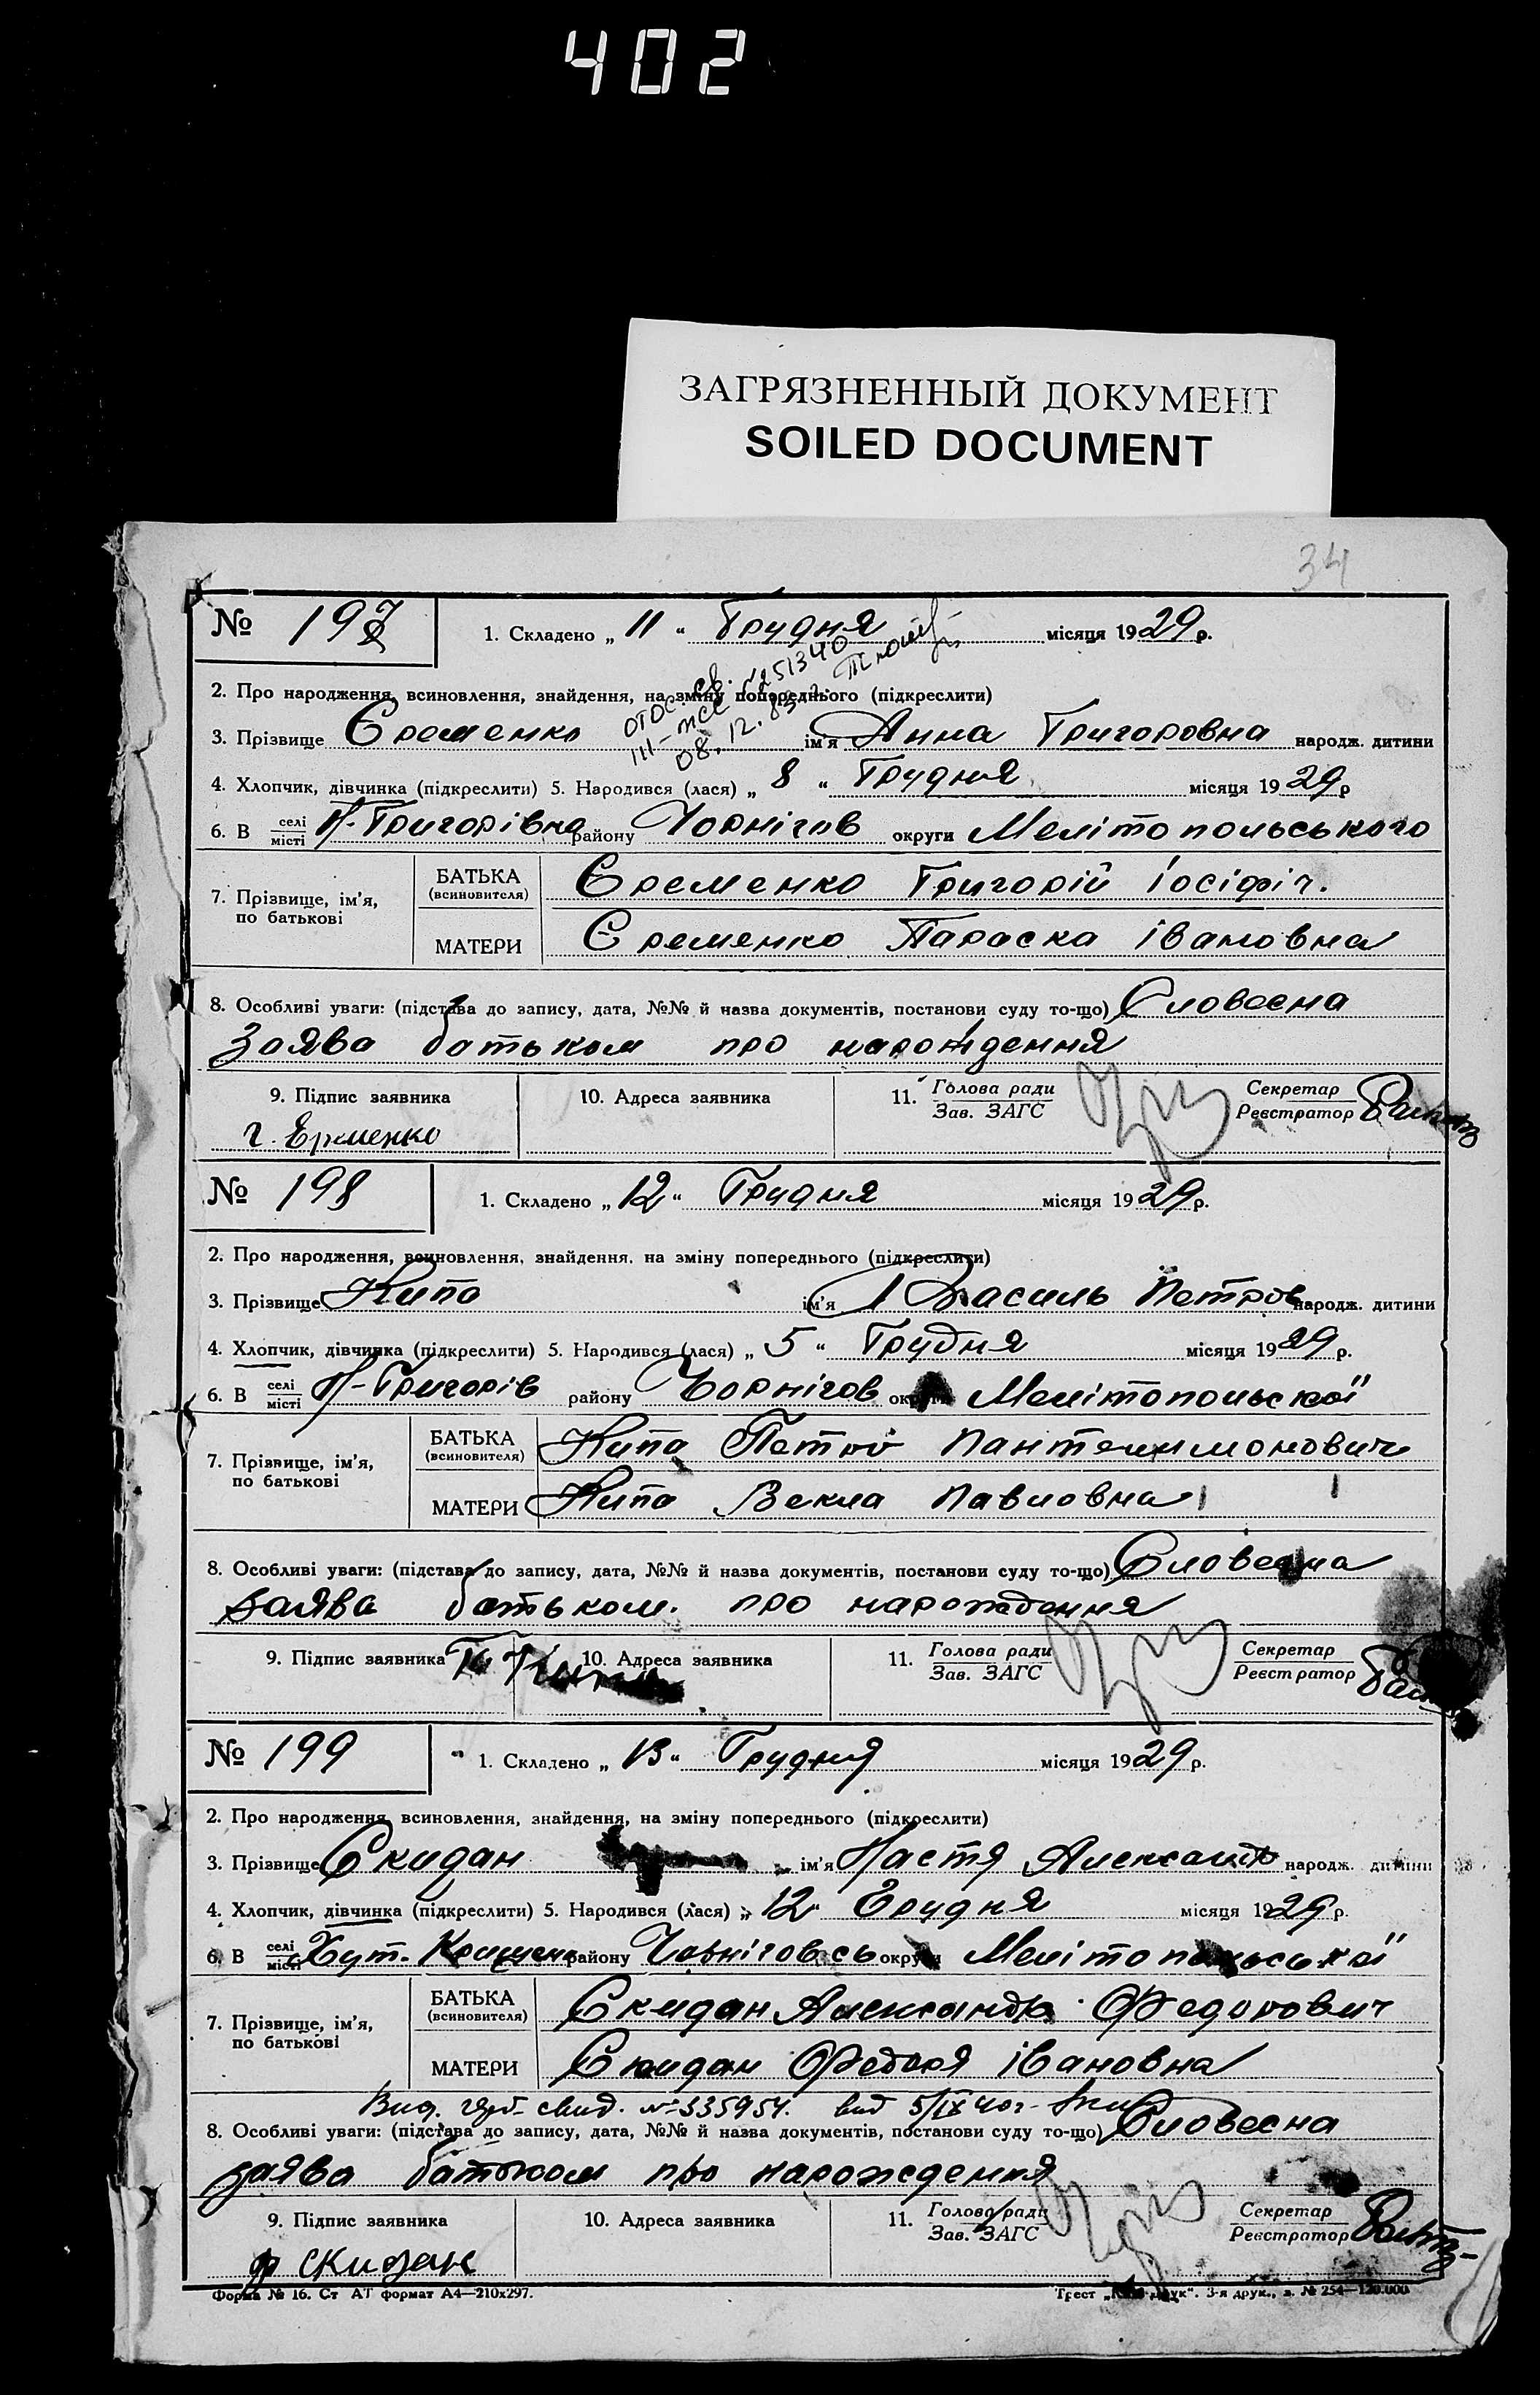 402
ЗАГРЯЗНЕННЫЙ ДОКУМЕНТ
SOILED DOCUMENT
34
№ 197 1. Складено „ 11 “ Грудня місяця 1929 р.
2. Про народження, всиновлення, знайдення, на зміну попереднього (підкреслити)
№251340
III-ЖС
08.12.83
3. Прізвище Єременко ім'я Анна Григоровна народж. дитини
4. Хлопчик, дівчинка (підкреслити) 5. Народився (лася) „ 8 “ Грудня місяця 1929 р
6. В селі/місті Н-Григорівка району Чорнігов округи Мелітопольського
7. Прізвище, ім'я, по батькові
БАТЬКА (всиновителя) Єременко Григорій Іосіфіч.
МАТЕРИ Єременко Параска Івановна
8. Особливі уваги: (підстава до запису, дата, №№ й назва документів, постанови суду то-що) Словесна
Заява батьком про нарождення
9. Підпис заявника 10. Адреса заявника 11. Голова ради/Зав. ЗАГС Секретар/Реєстратор
Г. Ерменко
№ 198 1. Складено „ 12 “ Грудня місяця 1929 р.
2. Про народження, всиновлення, знайдення, на зміну попереднього (підкреслити)
3. Прізвище Кипа ім'я Василь Петров народж. дитини
4. Хлопчик, дівчинка (підкреслити) 5. Народився (лася) „ 5 “ Грудня місяця 1929 р.
6. В селі/місті Н-Григорів району Чорнігов округи Мелітопольскої
7. Прізвище, ім'я, по батькові
БАТЬКА (всиновителя) Кипа Петро Пантелимонович
МАТЕРИ Кипа Векла Павловна
8. Особливі уваги: (підстава до запису, дата, №№ й назва документів, постанови суду то-що) Словесна
заява батьком. про нарождення
9. Підпис заявника 10. Адреса заявника 11. Голова ради/Зав. ЗАГС Секретар/Реєстратор
№ 199 1. Складено „ 13 “ Грудня місяця 1929 р.
2. Про народження, всиновлення, знайдення, на зміну попереднього (підкреслити)
3. Прізвище Скидан ім'я Настя Александр народж. дитини
4. Хлопчик, дівчинка (підкреслити) 5. Народився (лася) „ 12 “ Грудня місяця 1929 р.
6. В селі/місті Хут. району Чорніговсь округи Мелітопольської
7. Прізвище, ім'я, по батькові
БАТЬКА (всиновителя) Скидан Александр Федорович
МАТЕРИ Скидан Федося Івановна
Вид. свид. №335954. 5/IX 40г.
8. Особливі уваги: (підстава до запису, дата, №№ й назва документів, постанови суду то-що) Словесна
заява батьком про нарождення
9. Підпис заявника 10. Адреса заявника 11. Голова ради/Зав. ЗАГС Секретар/Реєстратор
Скидан
Форма № 16. Ст АТ формат А4—210х297. Трест 3-я друк., з. № 254—120.000